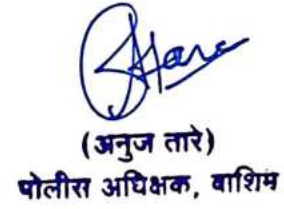 (अनुज तारे)
पोलीस अधिक्षक, वाशिम